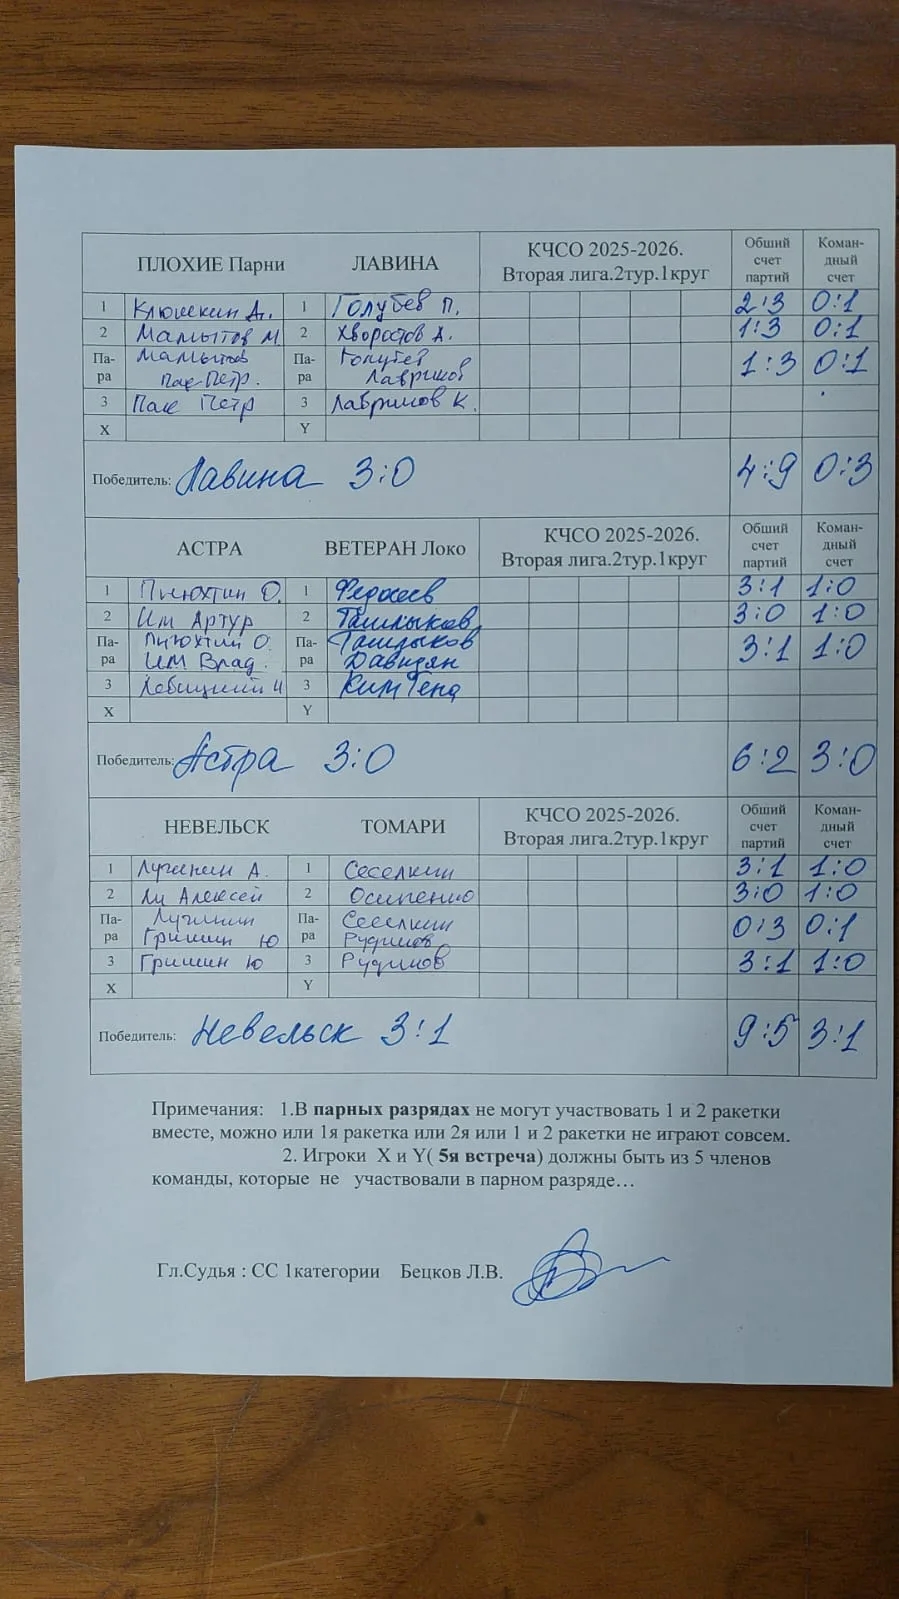 ПЛОХИЕ Парни ЛАВИНА КЧСО 2025-2026. Вторая лига.2тур.1круг Общий счет партий Коман-дный счет
1 Клюшкин Д. 1 Голубев П. 2:3 0:1
2 Мамытов М 2 Хворостов А. 1:3 0:1
Па-ра Мамытов Пак Петр. Па-ра Голубев Лавришов 1:3 0:1
3 Пак Петр 3 Лавришов К.
X Y
Победитель: Лавина 3:0 4:9 0:3
АСТРА ВЕТЕРАН Локо КЧСО 2025-2026. Вторая лига.2тур.1круг Общий счет партий Коман-дный счет
1 О. 1 3:1 1:0
2 Им Артур 2 Ташлыков 3:0 1:0
Па-ра О. Им Влад. Па-ра Ташлыков Давидян 3:1 1:0
3 3 Ким Гена
X Y
Победитель: Астра 3:0 6:2 3:0
НЕВЕЛЬСК ТОМАРИ КЧСО 2025-2026. Вторая лига.2тур.1круг Общий счет партий Коман-дный счет
1 А. 1 Сеселкин 3:1 1:0
2 Ли Алексей 2 Осипенко 3:0 1:0
Па-ра Гришин Ю Па-ра Сеселкин 0:3 0:1
3 Гришин Ю 3 3:1 1:0
X Y
Победитель: Невельск 3:1 9:5 3:1
Примечания: 1.В парных разрядах не могут участвовать 1 и 2 ракетки
вместе, можно или 1я ракетка или 2я или 1 и 2 ракетки не играют совсем.
2. Игроки X и Y( 5я встреча) должны быть из 5 членов
команды, которые не участвовали в парном разряде…
Гл.Судья : СС 1категории Бецков Л.В.